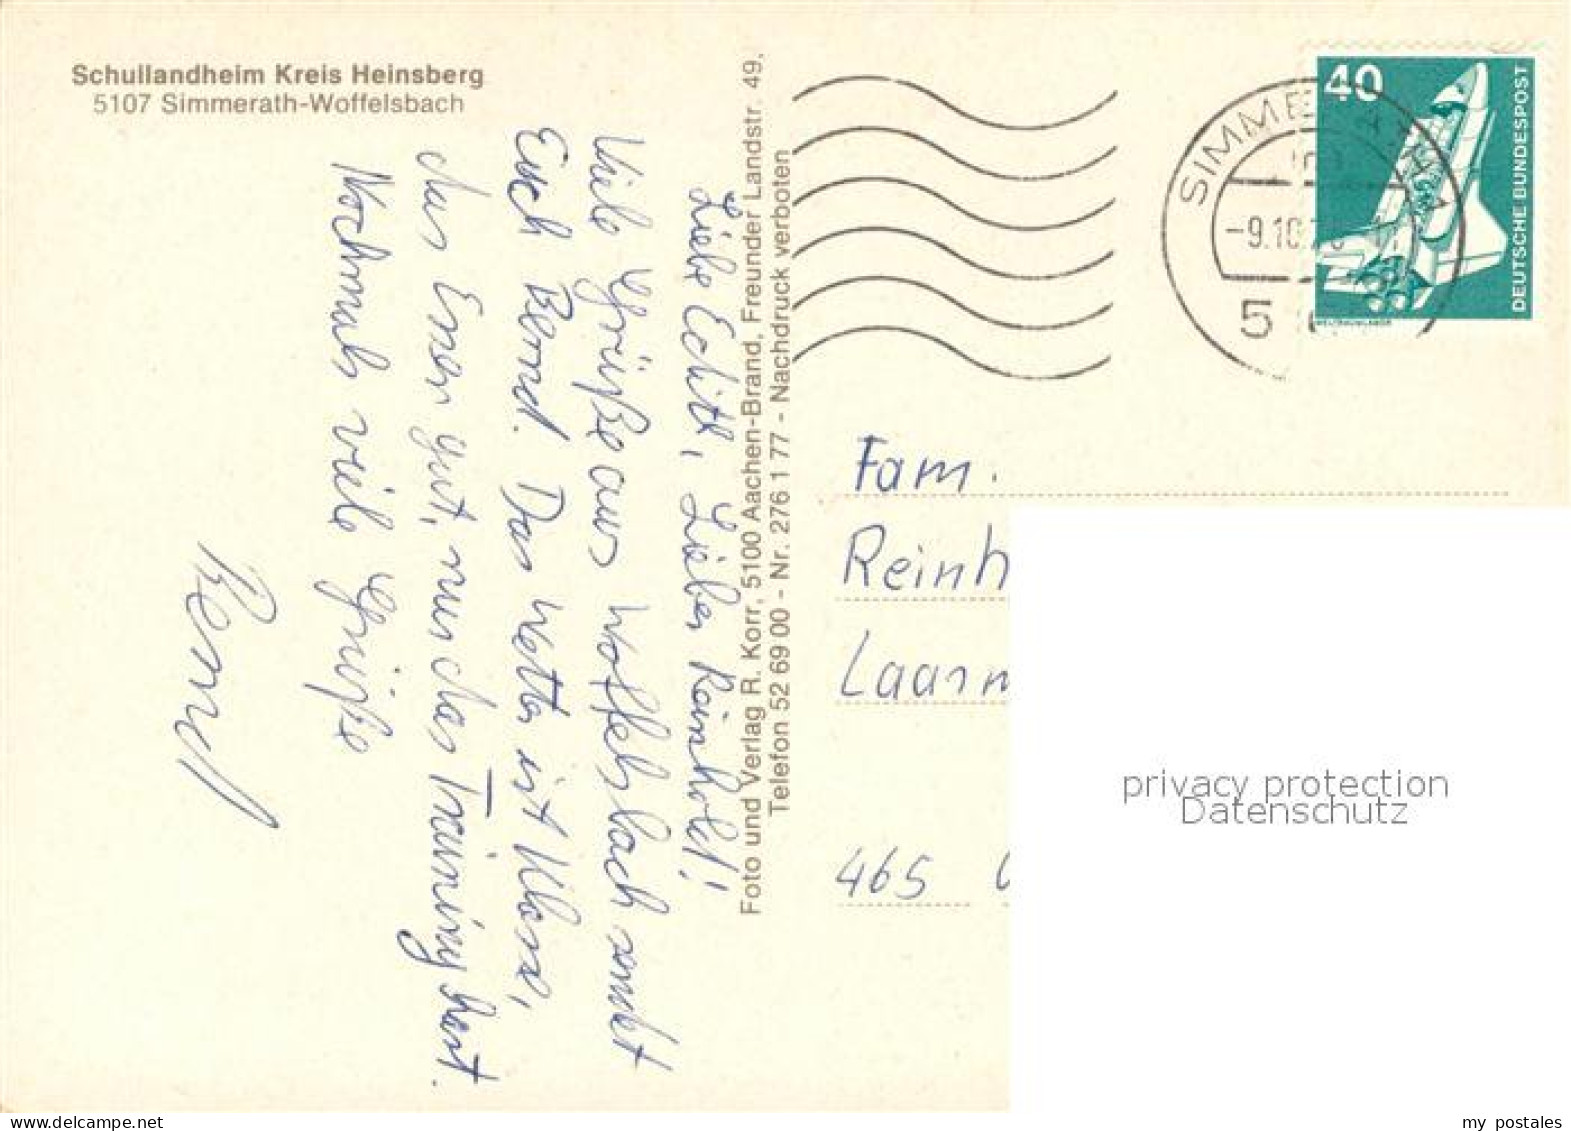 Schullandheim Kreis Heinsberg
5107 Simmerath-Woffelsbach
Liebe Edith, Lieber Reinhold!
Viele Grüße aus Woffelsbach sendet
Euch Bernd. Das Wetter ist Klasse,
das Essen gut, nur das Training hart.
Nochmals viele Grüße
Bernd
Foto und Verlag R. Korr, 5100 Aachen-Brand, Freunder Landstr. 49,
Telefon 52 69 00 - Nr. 276 1 77 - Nachdruck verboten
SIMMERATH 1
-9.10.7
5
40
DEUTSCHE BUNDESPOST
WELTRAUMLABOR
Fam.
Reinh
Laarm
465
privacy protection
Datenschutz
delcampe.net
my_postales